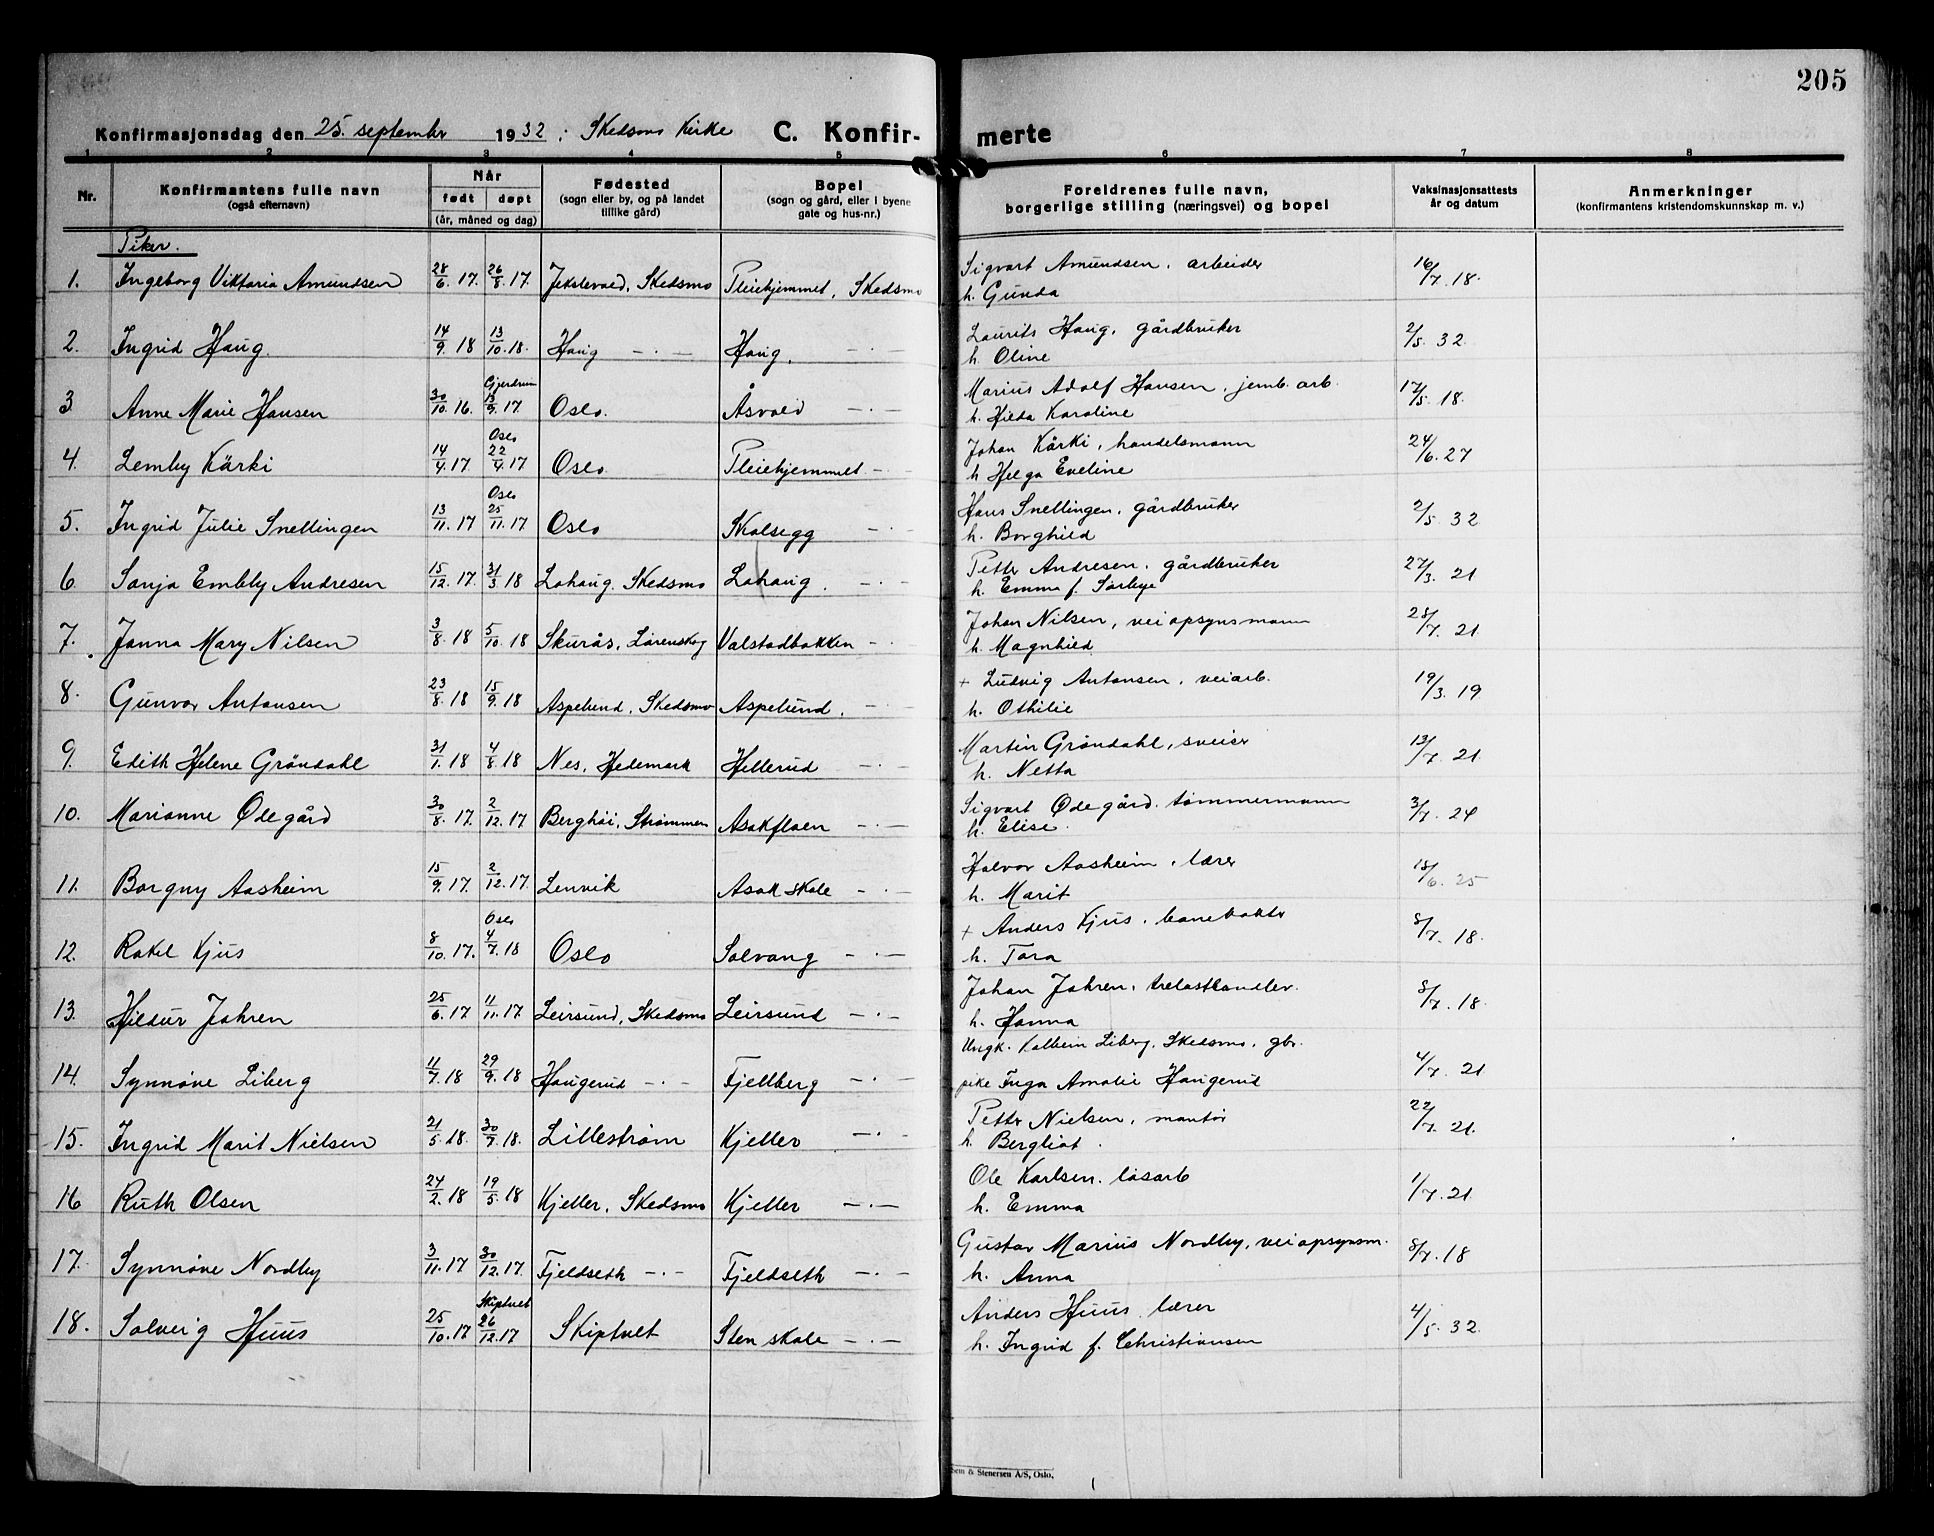 205
Konfirmasjonsdag den 25. september 1932 i Skedsmo Kirke C. Konfir- merte
1 2 3 4 5 6 7 8
Nr. Konfirmantens fulle navn (også efternavn) Når født døpt (år, måned og dag) Fødested (sogn eller by, og på landet tillike gård) Bopel (sogn og gård, eller i byene gate og hus-nr.) Foreldrenes fulle navn, borgerlige stilling (næringsvei) og bopel Vaksinasjonsattests år og datum Anmerkninger (konfirmantens kristendomskunnskap m. v.)
Piker.
1. Ingeborg Viktoria Amundsen 28/6 17. 26/8 17. Jekslevold, Skedsmo Pleiehjemmet, Skedsmo Sigvart Amundsen, arbeider 16/7. 18.
h. Gunda
2. Ingrid Haug. 14/9. 18 13/10. 18. Haug — · — Haug. — · — Laurits Haug, gårdbruker 2/5. 32.
h. Oline
Gjerdrum
3. Anne Marie Hansen 30/10. 16. 13/9. 17 Oslo. Åsvold — · — Marius Adolf Hansen, jernb. arb. 17/5. 18.
h. Hilda Karoline
Oslo
4. Lemby Kärki 14/4. 17 22/4. 17 Oslo Pleiehjemmet — · — Johan Kärki, handelsmann 24/6. 27
h. Helga Eveline
Oslo
5. Ingrid Julie Snellingen 13/11. 17 25/11. 17 Oslo Skolsegg — · — Hans Snellingen, gårdbruker 2/5. 32
h. Borghild
6. Sonja Embly Andresen 15/12. 17. 31/3 18 Lohaug, Skedsmo Lohaug. — · — Petter Andresen, gårdbruker 27/3. 21
h. Emma f. Sørbye
7. Janna Mary Nilsen 3/8. 18 5/10. 18 Skurås, Lørenskog Valstadbakken — · — Johan Nilsen, veiopsynsmann 28/7. 21
h. Magnhild
8. Gunvor Antonsen 23/8. 18 15/9. 18 Aspelund, Skedsmo Aspelund. — · — + Ludvig Antonsen, veiarb. 19/3. 19
h. Othilie
9. Edith Helene Gröndahl 31/1. 18 4/8. 18 Nes, Hedemark Hellerud — · — Martin Gröndahl, sveiser 13/7. 21
h. Netta
10. Marianne Ødegård 30/8. 17. 2/12. 17 Berghöi, Strömmen Asakfloen — · — Sigvart Ødegård, tömmermann 3/7. 24
h. Elise.
11. Borgny Aasheim 15/9. 17. 2/12. 17. Lenvik Asak skole — · — Halvor Aasheim, lærer 18/6. 25
h. Marit
Oslo
12. Rakel Kjus 8/10. 17. 4/7. 18 Oslo Solvang — · — + Anders Kjus, banevokter 8/7. 18.
h. Tora
13. Hildur Jahren 25/6. 17 11/11. 17 Leirsund, Skedsmo Leirsund — · — Johan Jahren, trelasthandler. 8/7. 18.
h. Hanna
14. Synnöve Liberg 11/7. 18 29/9. 18 Haugerud — · — Fjellberg — · — Ungk. Kolbein Liberg, Skedsmo, gbr. 4/7. 21
pike Inga Amalie Haugerud
15. Ingrid Marit Nielsen 21/5. 18. 30/7. 18. Lilleström Kjeller — · — Petter Nielsen, montör 22/7. 21.
h. Bergliot.
16 Ruth Olsen 24/2. 18 19/5. 18 Kjeller, Skedsmo Kjeller — · — Ole Karlsen, løsarb 1/7. 21.
h. Emma
17. Synnöve Nordby 3/11. 17 30/12. 17. Fjeldseth — · — Fjeldseth — · — Gustav Marius Nordby, veiopsynsm. 8/7. 18
h. Anna
Skiptvet
18. Solveig Huus 25/10. 17 26/12. 17 Skiptvet Sten skole — · — Anders Huus, lærer 4/5. 32.
h. Ingrid f. Christiansen
& Stenersen A/S, Oslo.